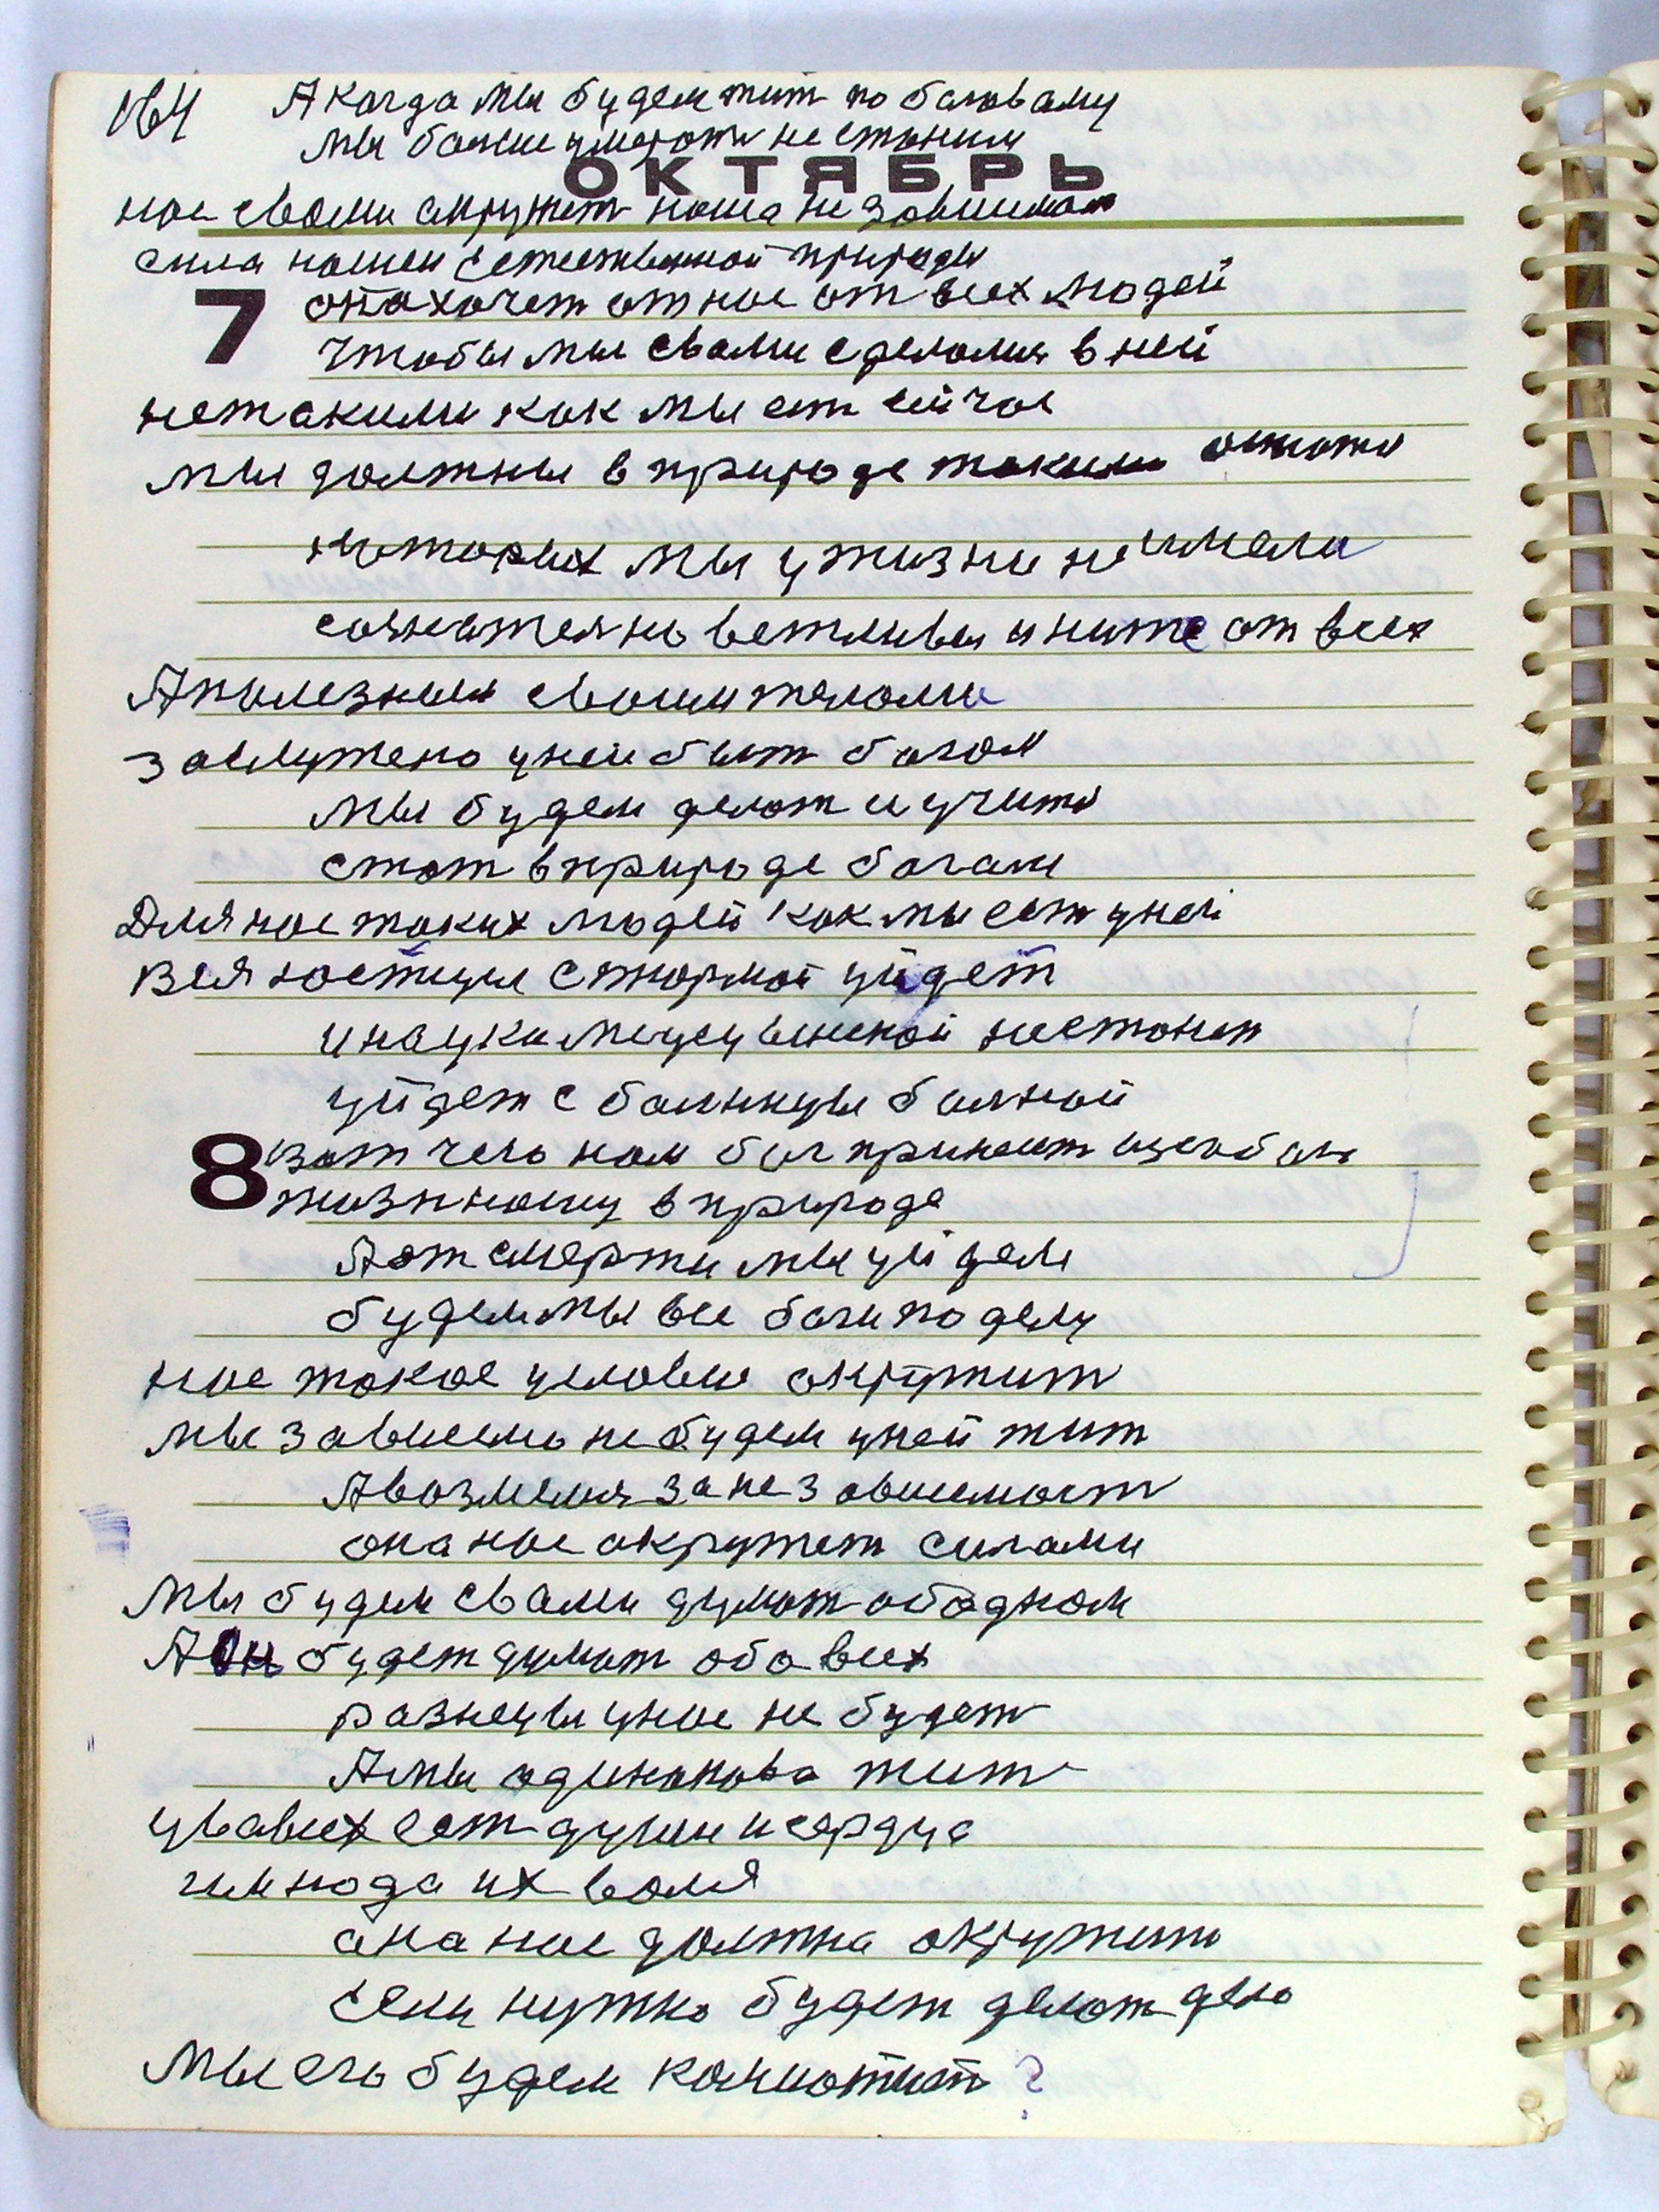 164 А когда мы будем жит по боговому
мы болши умерать не станим
ОКТЯБРЬ
нас свами окружет наша не зависимая
сила нашей естественной природы
7 она хочет от нас от всех людей
чтобы мы свами сделалис в ней
не такими как мы ест сейчас
мы должны в природе такими остатся
которых мы у жизни не имели
сознателно ветливы и ниже от всех
А полезным своим телами
заслужено у ней быт богом
мы будем делат и учится
стат в природе богам
Для нас таких людей как мы ест у ней
вся юстиция с тюрмой уйдет
и науки медецынской не станет
уйдет с болницы болной
8 вот чего нам бог принесет изсобою
жизн нашу в природе
А от смерти мы уйдем
будем мы все боги по делу
нас такое условие окружит
мы зависемо не будем у ней жит
А возмемся за не зависимост
она нас окружет силами
мы будем свами думат обо одном
А он будет думат обо всех
разницы у нас не будет
А мы одинаково жит
у вавсех ест души и сердца
им нада их воля
она нас должна окружит
если нужно будет делат дело
Мы его будем